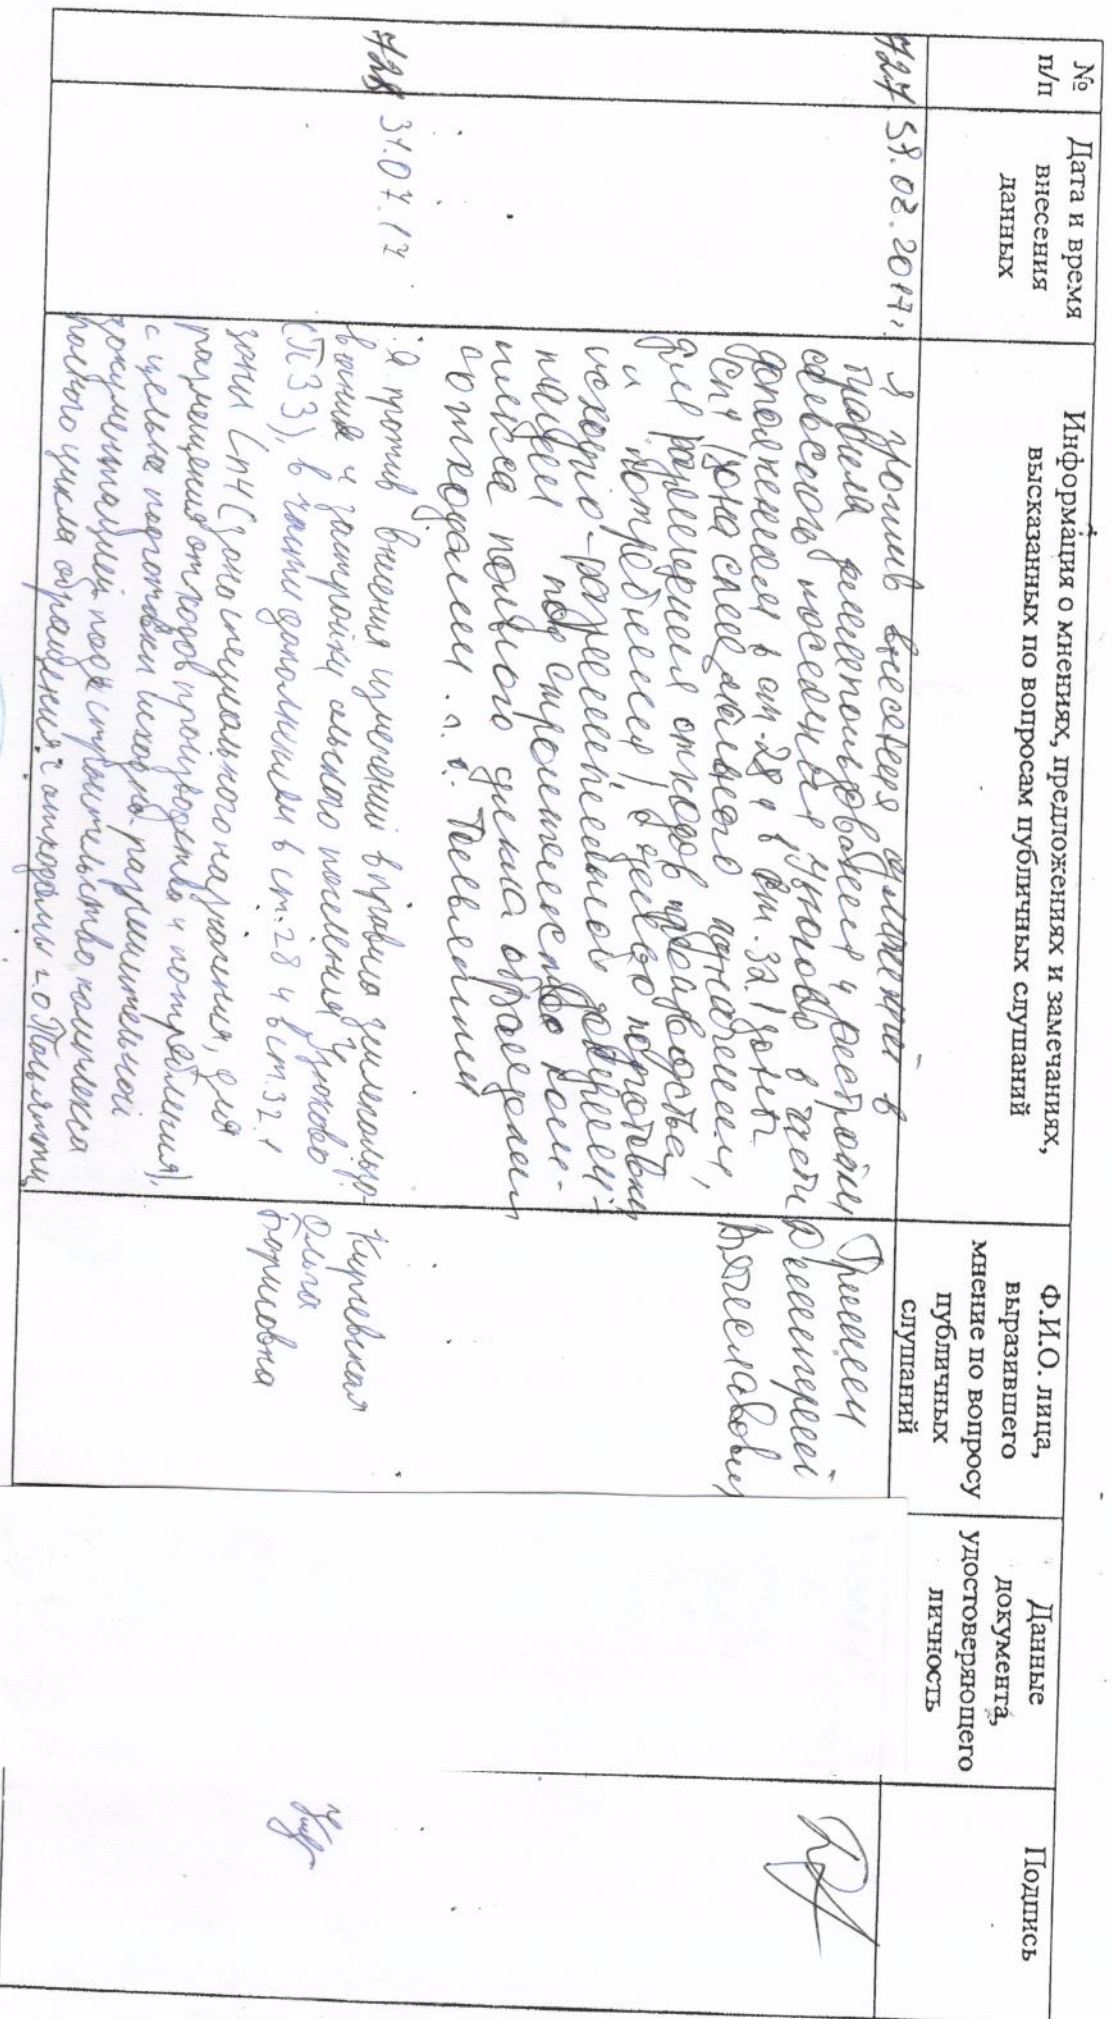 №
п/п
Дата и время
внесения
данных
Информация о мнениях, предложениях и замечаниях,
высказанных по вопросам публичных слушаний
Ф.И.О. лица,
выразившего
мнение по вопросу
публичных
слушаний
Данные
документа,
удостоверяющего
личность
Подпись
727
Я против внесения изменений в
правила землепользования и застройки
сельского поселения Узюково в части
дополнением в ст. 28 и в ст. 32.1 зоны
Сп1 (зона специального назначения,
для размещения отходов производства
и потребления), с целью подготовки
исходно-разрешительной документ-
тации под строительство ком-
плекса полного цикла обращения
с отходами г.о. Тольятти
Вячеславович
728
31.07.17
Я против внесения изменений в правила землепользо-
вания и застройки сельского поселения Узюково
(ПЗЗ), в части дополнением в ст. 28 и в ст. 32.1
зоны Сп1 (зона специального назначения, для
размещения отходов производства и потребления),
с целью подготовки исходно-разрешительной
документацией под строительство комплекса
полного цикла обращения с отходами г.о Тольятти
Ольга
Борисовна